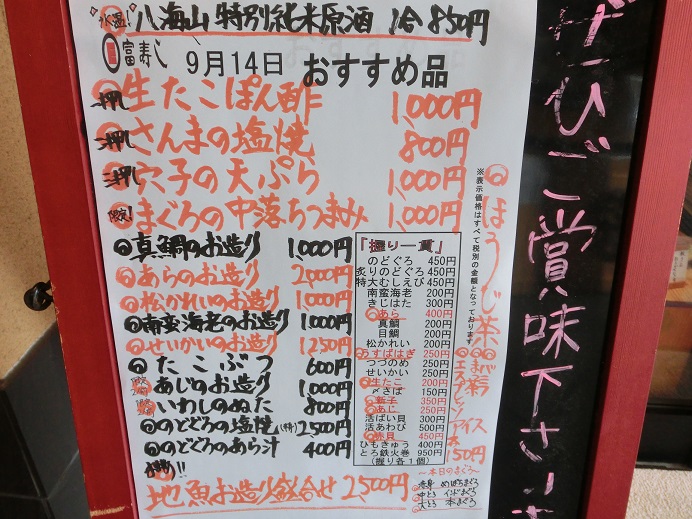 氷温! 八海山 特別純米原酒 1合 850円
富寿し 9月14日 おすすめ品
押し 生たこぽん酢 1,000円
押し さんまの塩焼 800円
押し 穴子の天ぷら 1,000円
限定 まぐろの中落ちつまみ 1,000円
真鯛のお造り 1,000円
あらのお造り 2,000円
松かれいのお造り 1,000円
南蛮海老のお造り 1,000円
せいかいのお造り 1,250円
たこぶつ 600円
あじのお造り 1,000円
いわしのぬた 800円
のどぐろの塩焼(特) 2,500円
のどぐろのあら汁 400円
地魚お造り盛合せ 2,500円
「握り一貫」
のどぐろ 450円
炙りのどぐろ 450円
特大むしえび 450円
南蛮海老 200円
きじはた 300円
あら 400円
真鯛 200円
目鯛 200円
松かれい 200円
うすばはぎ 250円
つづのめ 250円
せいかい 250円
生たこ 200円
〆さば 150円
新子 350円
あじ 250円
活ばい貝 300円
活あわび 500円
赤貝 450円
ひもきゅう 400円
とろ鉄火巻 950円
(握り各1個)
〜本日のまぐろ〜
赤身 めばちまぐろ
中とろ インドまぐろ
大とろ 本まぐろ
※表示価格はすべて税別の金額となっております。
ほうじ茶
エスプレッソ
アイス
150円
ぜひご賞味下さいませ